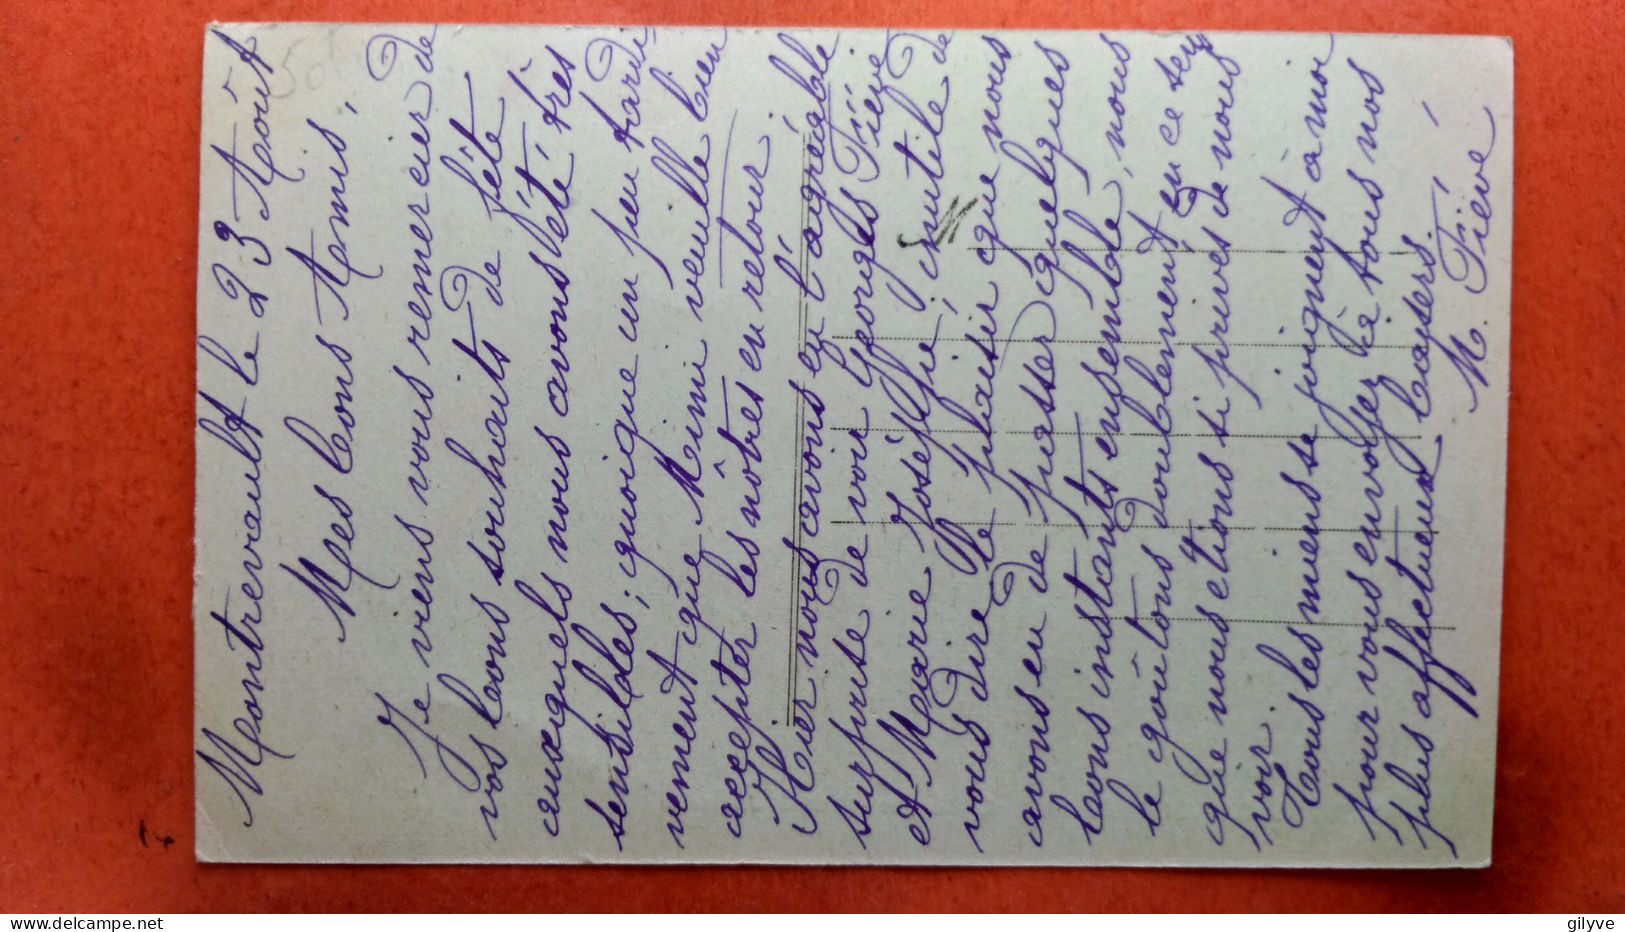 Montrevault le 23 Août
Mes bons Amis,
Je viens vous remercier de
vos bons souhaits de fête
auxquels nous avons été très
sensibles ; quoique un peu tardi-
vement que Mimi veuille bien
accepter les nôtres en retour.
Hier nous avons eu l'agréable
surprise de voir Georges Fiévé
et Marie Josèphe, inutile de
vous dire le plaisir que nous
avons eu de passer quelques
bons instants ensemble, nous
le goûtons doublement en ce
que nous étions si privés de nous
voir.
Tous les miens se joignent à moi
pour vous envoyer à tous nos
plus affectueux baisers.
M. Fiévé
50
gilyve